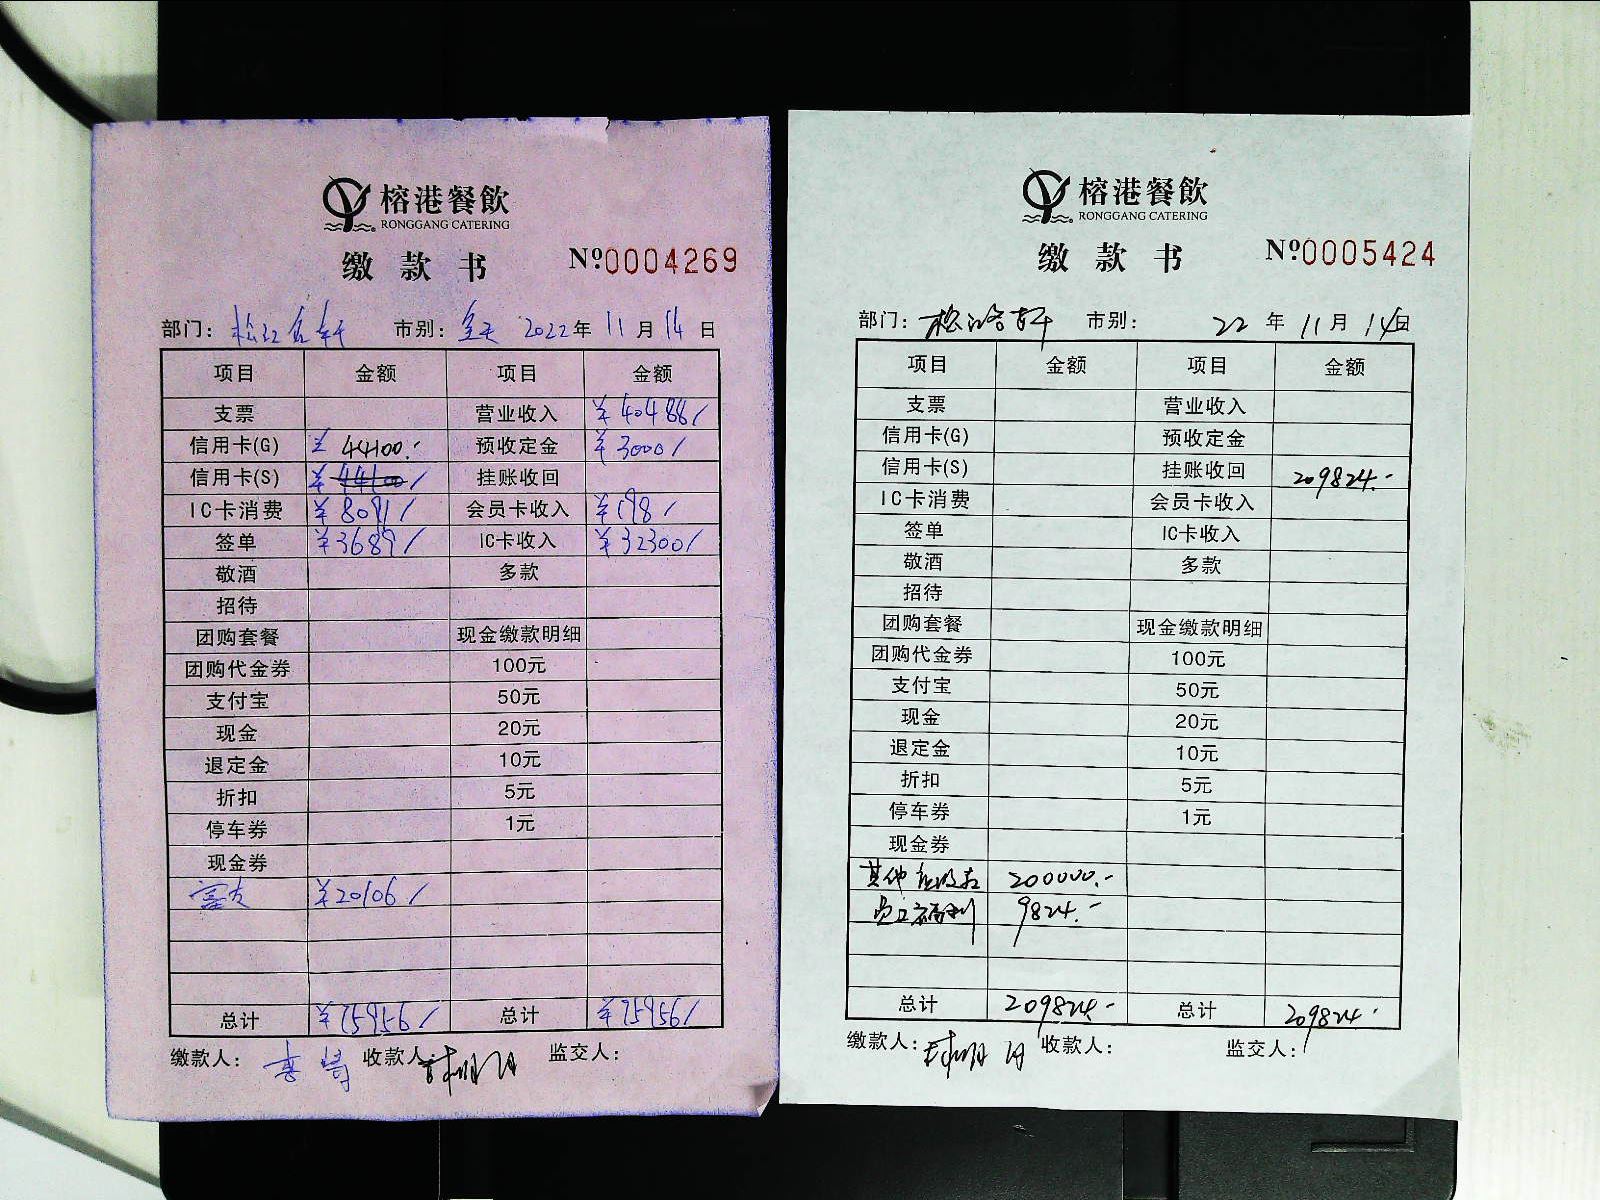 榕港餐飲
RONGGANG CATERING
缴款书 №0004269
部门： 市别： 2022年 11月 14日
项目 金额 项目 金额
支票 营业收入 ¥40488/
信用卡(G) ¥44100.- 预收定金 ¥3000/
信用卡(S) ¥44100/ 挂账收回
IC卡消费 ¥8091/ 会员卡收入 ¥198/
签单 ¥3689/ IC卡收入 ¥32300/
敬酒 多款
招待
团购套餐 现金缴款明细
团购代金券 100元
支付宝 50元
现金 20元
退定金 10元
折扣 5元
停车券 1元
现金券
¥20106/
总计 ¥75956/ 总计 ¥75956/
缴款人： 收款人： 监交人：
榕港餐飲
RONGGANG CATERING
缴款书 №0005424
部门： 市别： 22年 11月 14日
项目 金额 项目 金额
支票 营业收入
信用卡(G) 预收定金
信用卡(S) 挂账收回 209824.-
IC卡消费 会员卡收入
签单 IC卡收入
敬酒 多款
招待
团购套餐 现金缴款明细
团购代金券 100元
支付宝 50元
现金 20元
退定金 10元
折扣 5元
停车券 1元
现金券
其他应收款 200000.-
员工福利 9824.-
总计 209824.- 总计 209824.-
缴款人： 收款人： 监交人：